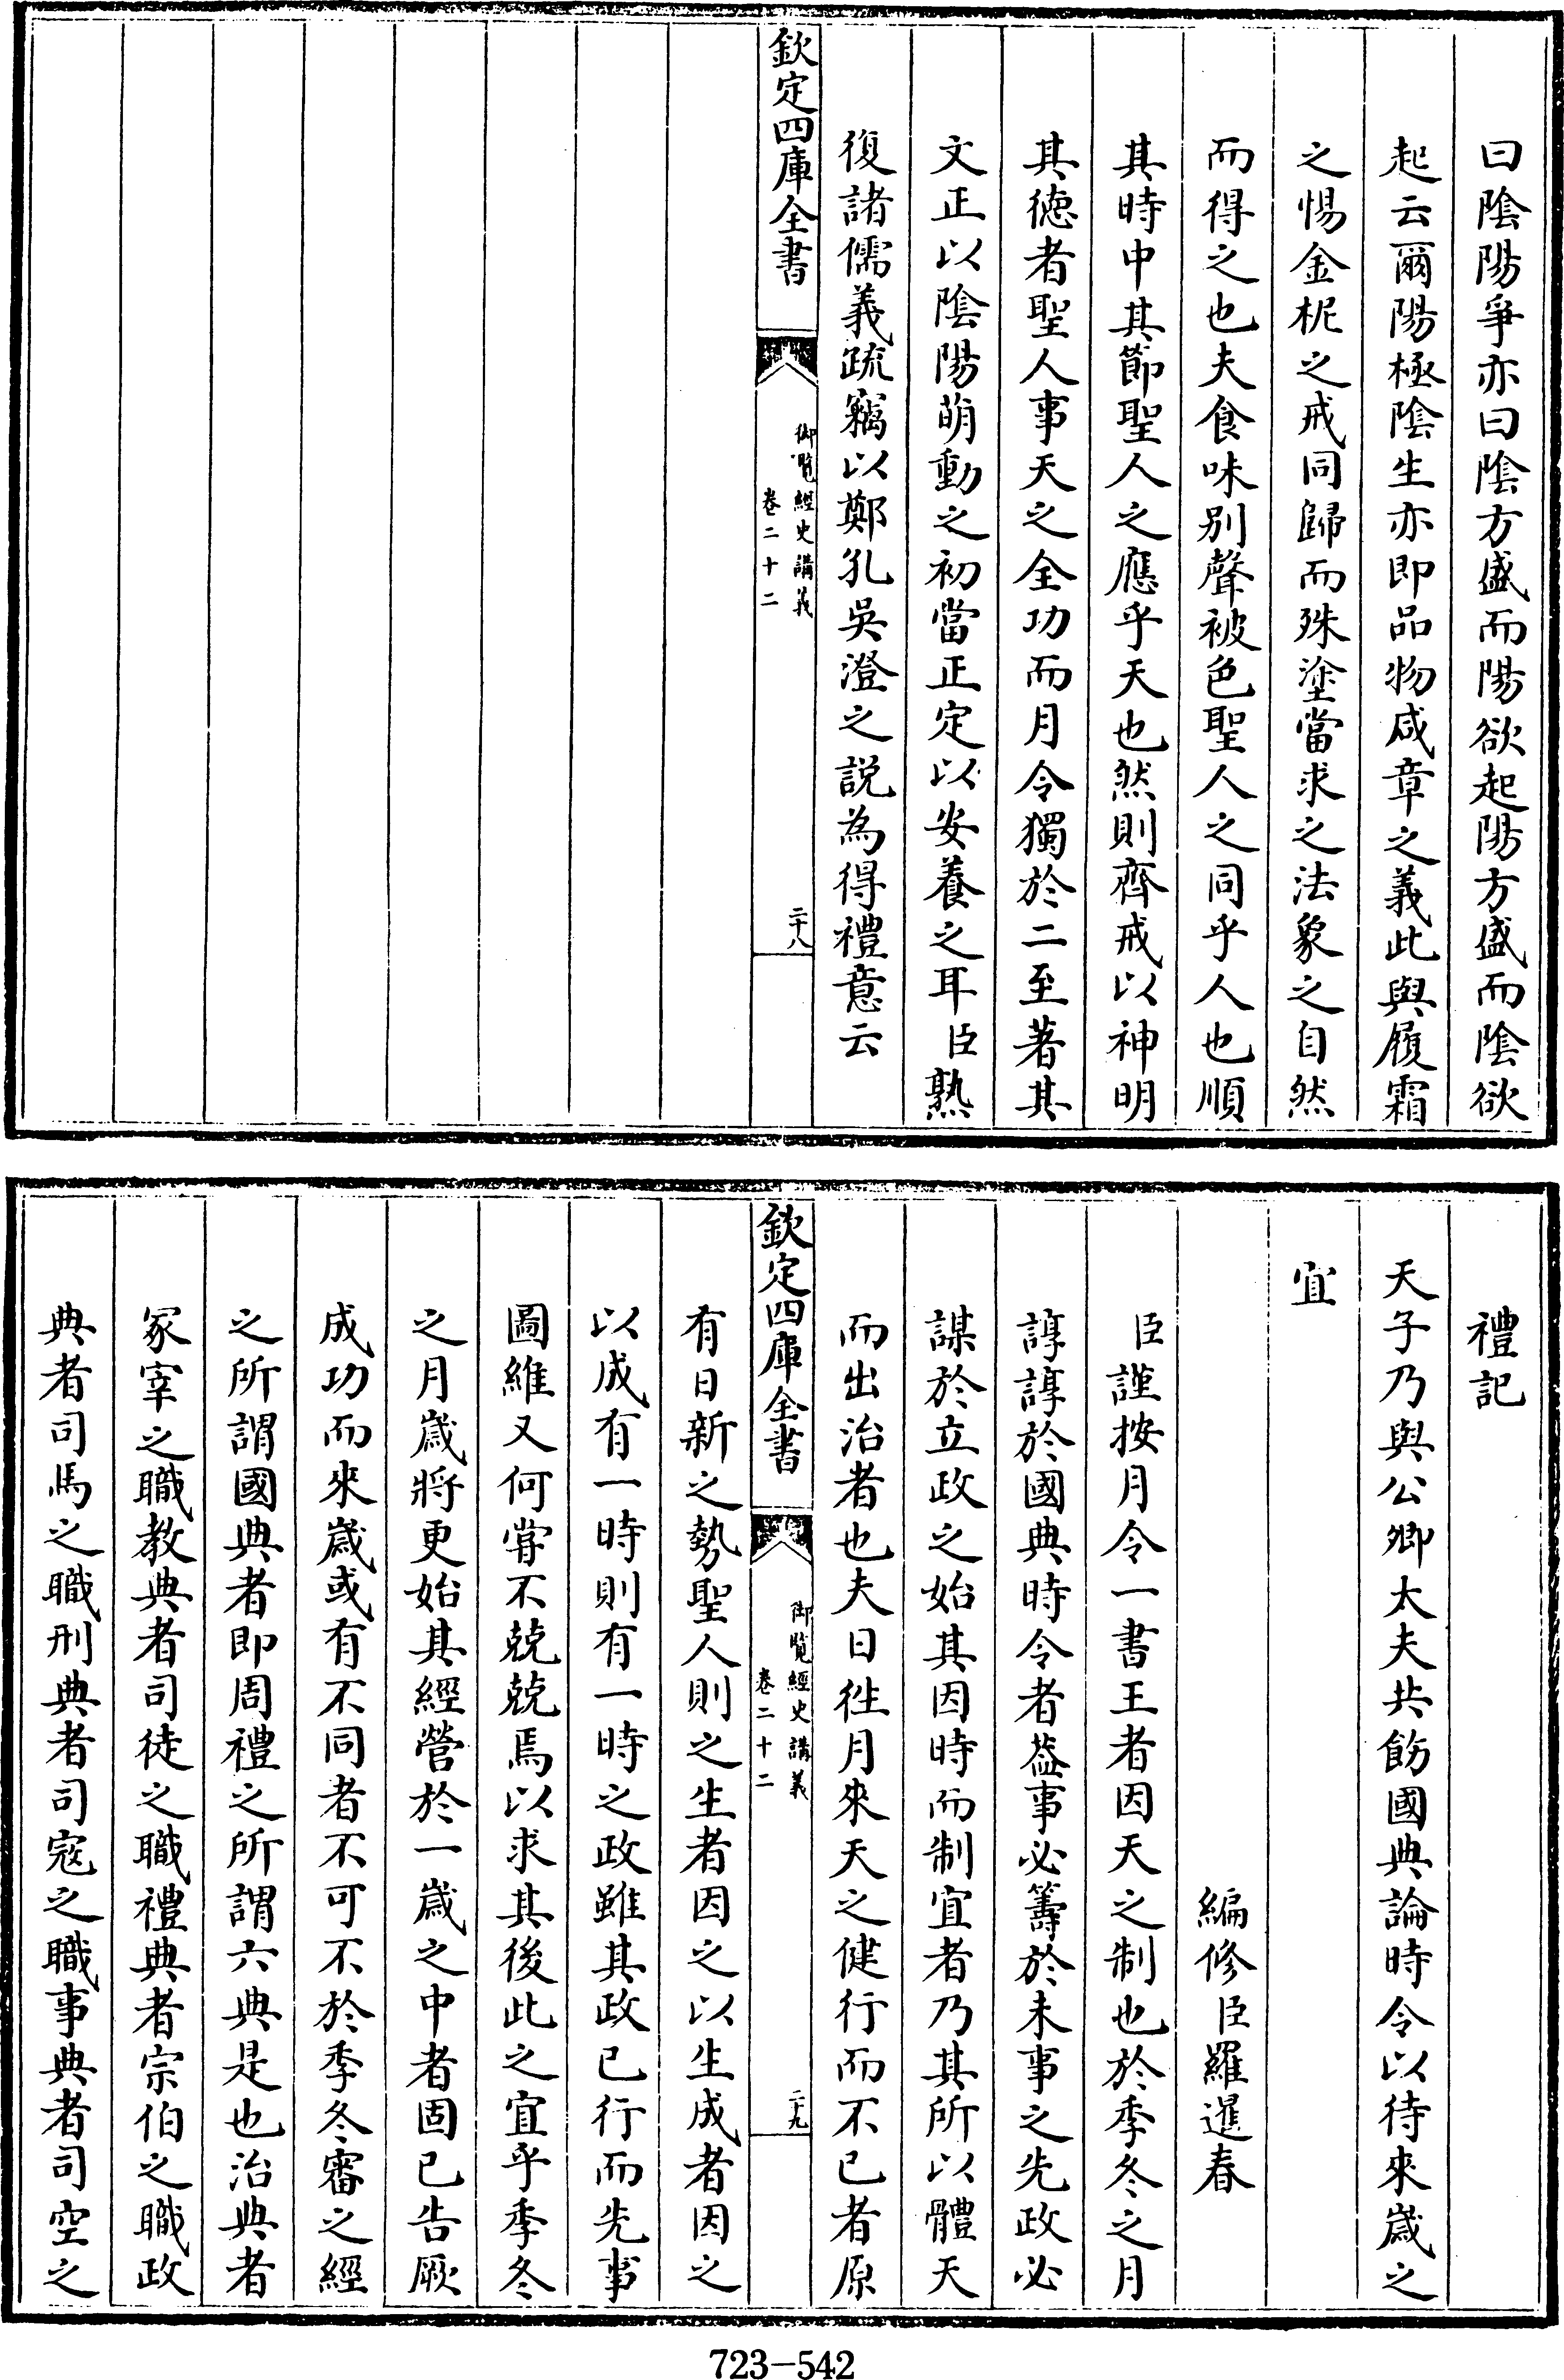 曰陰陽爭亦曰陰方盛而陽欲起陽方盛而陰欲
起云爾陽極陰生亦即品物咸章之義此與履霜
之惕金柅之戒同歸而殊塗當求之法象之自然
而得之也夫食味别聲被色聖人之同乎人也順
其時中其節聖人之應乎天也然則齊戒以神明
其徳者聖人事天之全功而月令獨於二至著其
文正以陰陽萌動之初當正定以安養之耳臣熟
復諸儒義疏竊以鄭孔吳澄之説為得禮意云
欽定四庫全書
御覽經史講義
卷二十二
二十八
禮記
天子乃與公卿大夫共飭國典論時令以待來嵗之
宜
編修臣羅暹春
臣謹按月令一書王者因天之制也於季冬之月
諄諄於國典時令者葢事必籌於未事之先政必
謀於立政之始其因時而制宜者乃其所以體天
而出治者也夫日徃月來天之健行而不已者原
欽定四庫全書
御覽經史講義
卷二十二
二十九
有日新之勢聖人則之生者因之以生成者因之
以成有一時則有一時之政雖其政已行而先事
圖維又何甞不兢兢焉以求其後此之宜乎季冬
之月嵗將更始其經營於一嵗之中者固已告厥
成功而來嵗或有不同者不可不於季冬審之經
之所謂國典者即周禮之所謂六典是也治典者
冢宰之職教典者司徒之職禮典者宗伯之職政
典者司馬之職刑典者司寇之職事典者司空之
723-542